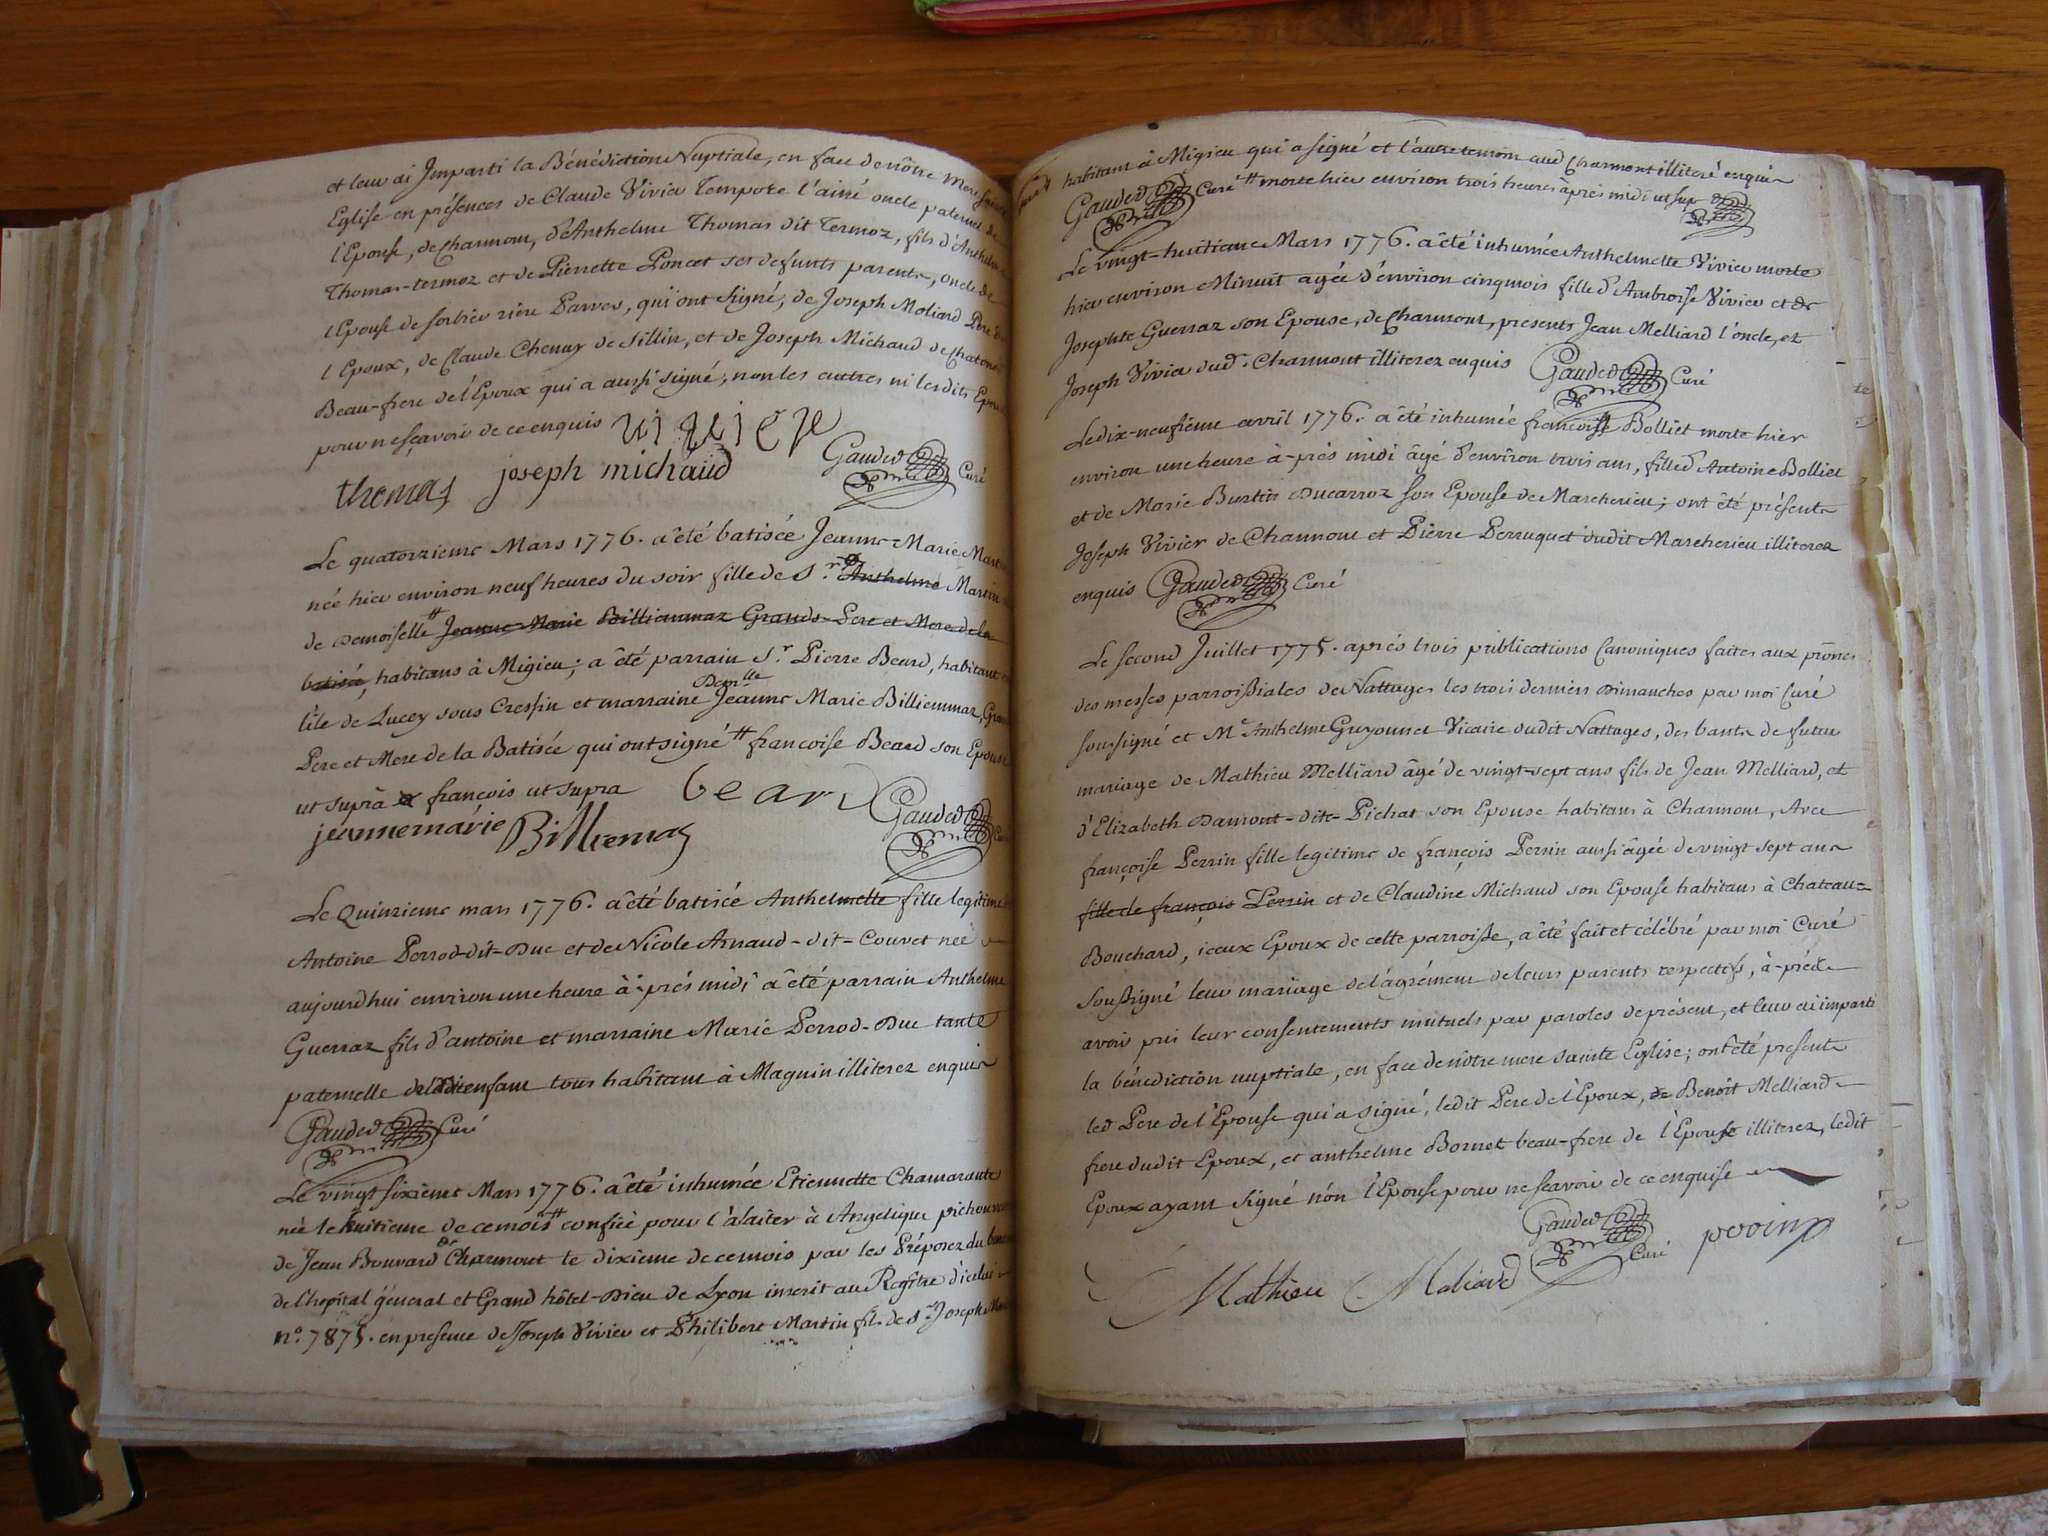 et leur ai Imparti la Bénédiction Nuptiale, en face de nôtre Mere Sainte
Eglise en présences de Claude Vivier Tempote l'ainé oncle paternel de
l'Epouse, de Charmont, d'Anthelme Thomas dit Termoz, fils d'Anthelme
Thomas-termoz et de Pierrette Poncet ses defunts parents, oncle de
l'Epouse de sorbier rière Parves, qui ont signé, de Joseph Moliard Père de
l'Epoux, de Claude Chenuy de Sillin, et de Joseph Michaud de
Beau-frere de l'Epoux qui a aussi signé, non les autres ni lesdits Epoux
pour ne sçavoir de ce enquis viuier
thomas joseph michaud Gauded Curé
Le quatorzieme Mars 1776. a été batisée Jeanne-Marie Martin
née hier environ neuf heures du soir fille de S.r Anthelme Martin
de Demoiselle # Jeanne Marie Billiemmaz Grands-Pere et Mere de la
batisée, habitans à Migieu; a été parrain S.r Pierre Beard, habitant
l'ile de Lucey sous Cressin et marraine Demlle Jeanne Marie Billiemmaz, Grand
Pere et Mere de la Batisée qui ont signé # francoise Beard son Epouse
ut suprà francois ut supra bear Gauded Curé
jeannemarie Billiemas
Le Quinzieme mars 1776. a été batisée Anthelmette fille legitime
Antoine Perrod-dit-Duc et de Nicole Arnaud-dit-Couvet née
aujourdhui environ une heure à-prés midi a été parrain Anthelme
Guerraz fils d'antoine et marraine Marie Perrod-Duc tante
paternelle de l'enfant tous habitant à Magnin illiterez enquis
Gauded Curé
Le vingt sixieme Mars 1776. a été inhumée Etiennette Chamarante
née le huitieme de ce mois # confiée pour l'alaiter à Angelique pichou
de Jean Bouvard de Charmont le dixieme de ce mois par les Préposez du
de l'hopital general et Grand hôtel-Dieu de Lyon inscrit au Regître d'icelui
n.o 7875. en presence de Joseph Vivier et Philibert Martin fil. de S.r Joseph
habitant à Migieu qui a signé et l'autre temoin aud Charmont illiteré enquis
Gauded Curé # morte hier environ trois heures après midi ut sup
Le vingt-huitieme Mars 1776. a été inhumée Anthelmette Vivier morte
hier environ Minuit agée d'environ cinq mois fille d'Ambroise Vivier et de
Josephte Guerraz son Epouse, de Charmont, presents Jean Melliard l'oncle, et
Joseph Vivier dud. Charmont illiterez enquis Gauded Curé
Le dix-neufieme avril 1776. a été inhumée francoise Bolliet morte hier
environ une heure à-prés midi âgé d'environ trois ans, fille d'Antoine Bolliet
et de Marie Burtin Ducarroz son Epouse de Marcherieu; ont été présents
Joseph Vivier de Charmont et Pierre Perruquet dudit Marcherieu illiterez
enquis Gauded Curé
Le second Juillet 1775. aprés trois publications Canoniques faites aux prônes
des messes parroissiales de Nattages les trois derniers Dimanches par moi Curé
soussigné et M.e Anthelme Guyonnet Vicaire dudit Nattages, des bants de futur
mariage de Mathieu Melliard âgé de vingt-sept ans fils de Jean Melliard, et
d'Elizabeth Damont-dite-Pichat son Epouse habitans à Charmont, Avec
françoise Perrin fille legitime de françois Perrin aussi âgée de vingt sept ans
fille de francois Perrin et de Claudine Michaud son Epouse habitans à Chateau=
Bouchard, iceux Epoux de cette parroisse, a été fait et célébré par moi Curé
soussigné leur mariage de l'agrément de leurs parents respectifs, à-prés
avoir pris leur consentements mutuels par paroles de présent, et leur ai imparti
la bénédiction nuptiale, en face de nôtre mere Sainte Eglise; ont été presents
led Pere de l'Epouse qui a signé, ledit Pere de l'Epoux, de Benoît Melliard
frere dudit Epoux, et anthelme Bornet beau-frere de l'Epouse illiterez, ledit
Epoux ayant signé non l'Epouse pour ne sçavoir de ce enquise
Gauded Curé peroin
Mathieu Moliard